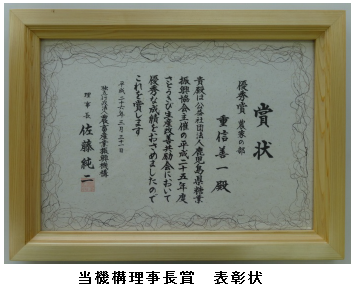 賞状
優秀賞 農家の部
重信善一殿
貴殿は公益社団法人鹿児島県糖業
振興協会主催の平成二十五年度
さとうきび生産改善共励会において
優秀な成績をおさめましたので
これを賞します
平成二十六年三月二十一日
独立行政法人農畜産業振興機構
理事長 佐藤純二
当機構理事長賞 表彰状